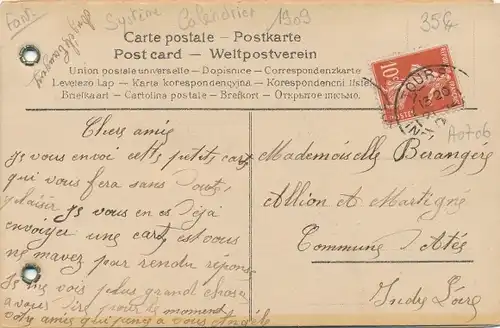 Fant.
Système Calendrier 1909
35€
Carte postale - Postkarte
Post card - Weltpostverein
Union postale universelle - Dopisnice - Correspondenzkarte
Levelezo Lap - Karta korespondencyjna - Korespondencni listek
Briefkaart - Cartolina postale - Brefkort - Открытое письмо.
10
A0706
Chers amie
Je vous envoi cette petite carte
qui vous fera sans Doute,
plaisir. Je vous en es Déjà
envoyer une carte, est vous
ne mavez par rendu réponse
Je me vois plus grand chose
a vous Dire pour le moment
votre amie qui pense a vous Angèle
Mademoiselle Berangère
Allion et Martigné
Commune Atée
Indre Loire